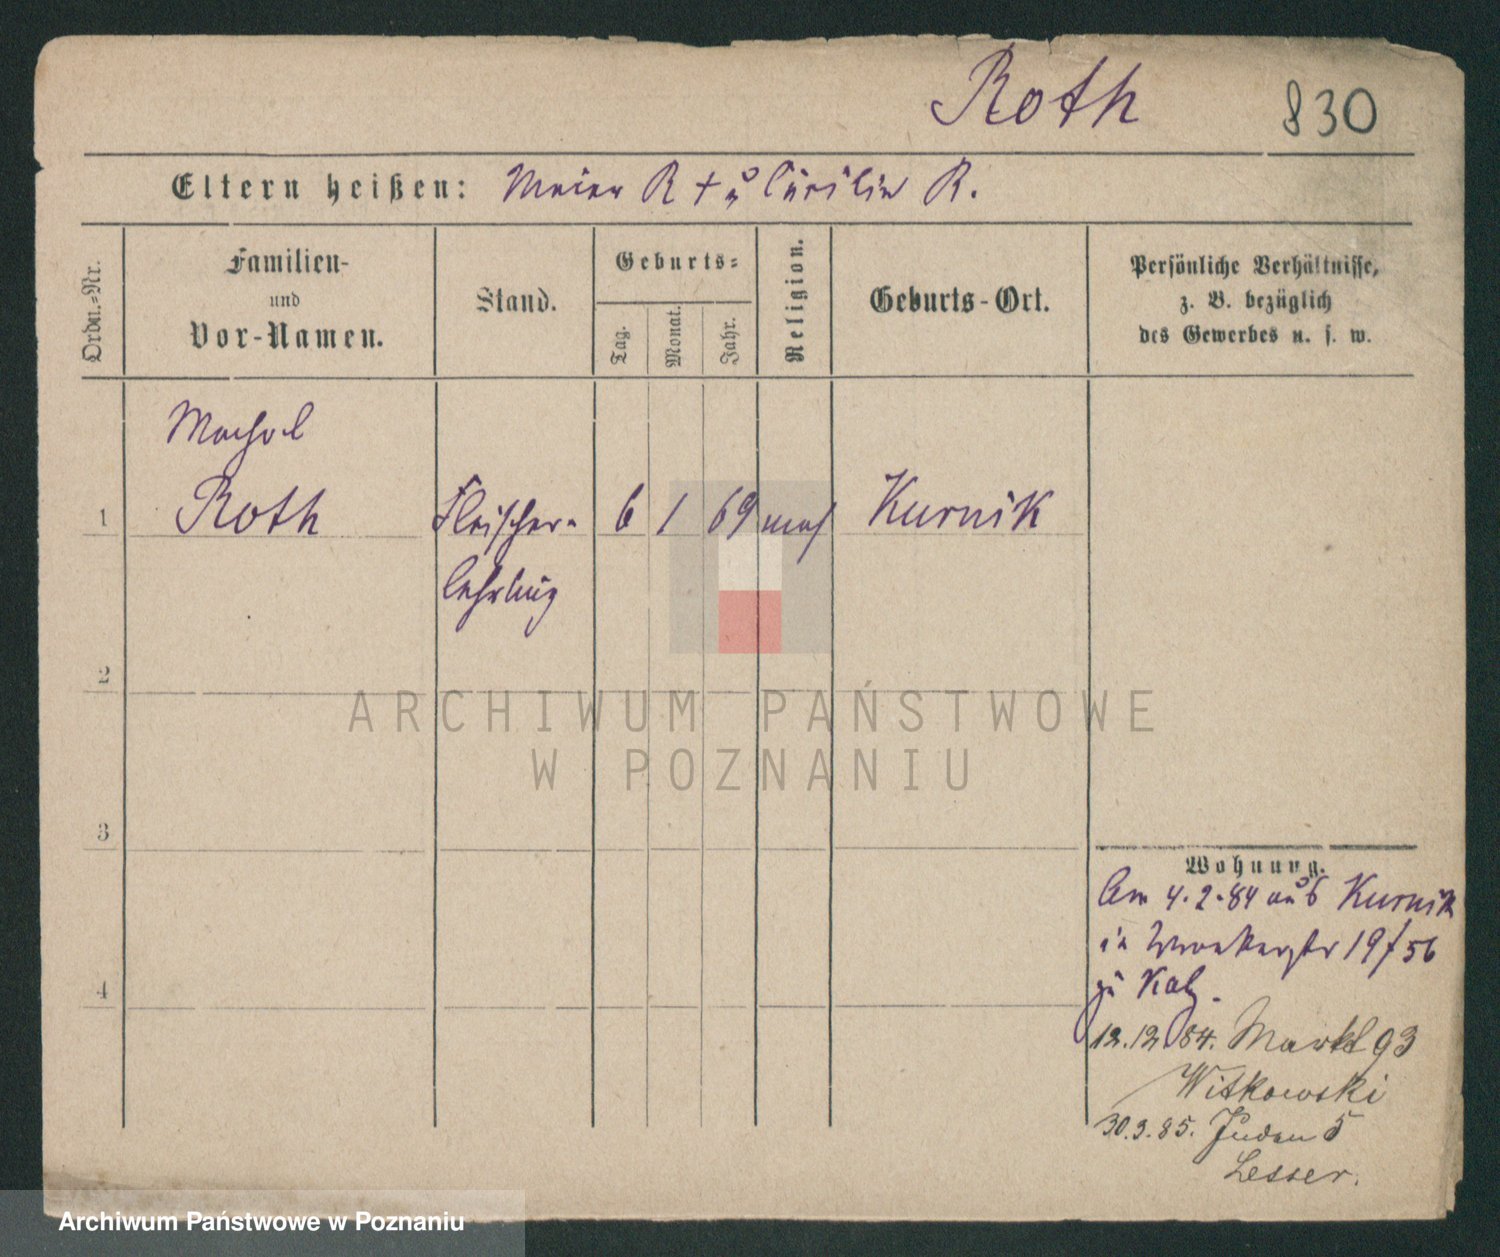 Roth 830
Eltern heißen: Meier R † u Cäcilie R.
Ordn.-Nr.
Familien-
und
Vor-Namen.
Stand.
Geburts-
Tag.
Monat.
Jahr.
Religion.
Geburts-Ort.
Persönliche Verhältnisse,
z. B. bezüglich
des Gewerbes u. s. w.
Machol
1 Roth Fleischer- 6 1 69 mos Kurnik
lehrling
2
3
4
Wohnung.
Am 4.2.84 aus Kurnik
in Wronkerstr 19/56
zu Katz.
12.12.84. Markt 93
Witkowski
30.3.85. Juden 5
Lesser.
ARCHIWUM PAŃSTWOWE
W POZNANIU
Archiwum Państwowe w Poznaniu